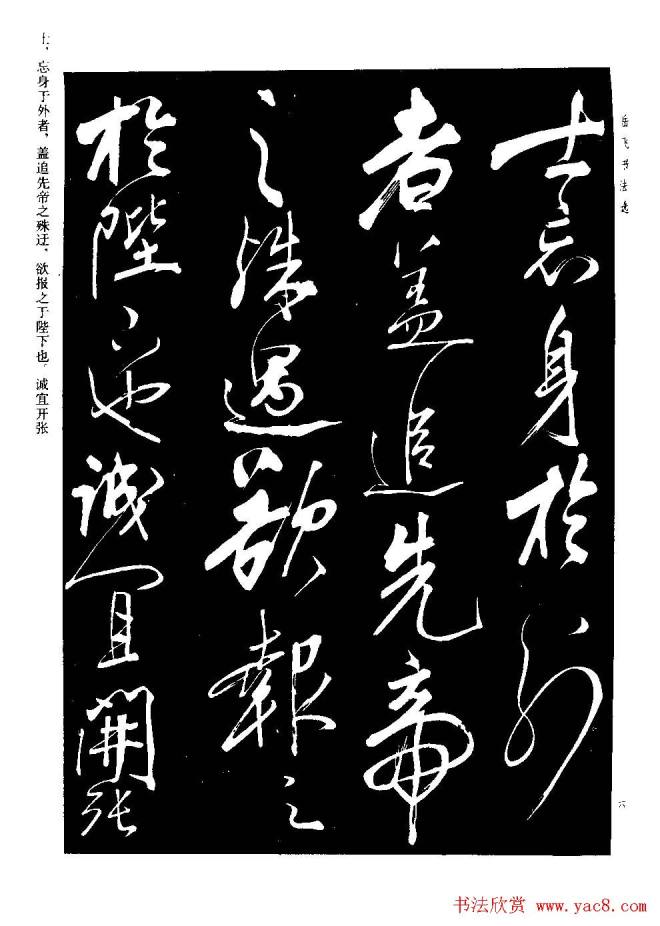 岳飞书法选
士忘身於外
者盖追先帝
之殊遇欲報之
於陛下也誠宜開張
士,忘身于外者,盖追先帝之殊遇,欲报之于陛下也。诚宜开张
六
书法欣赏 www.yac8.com